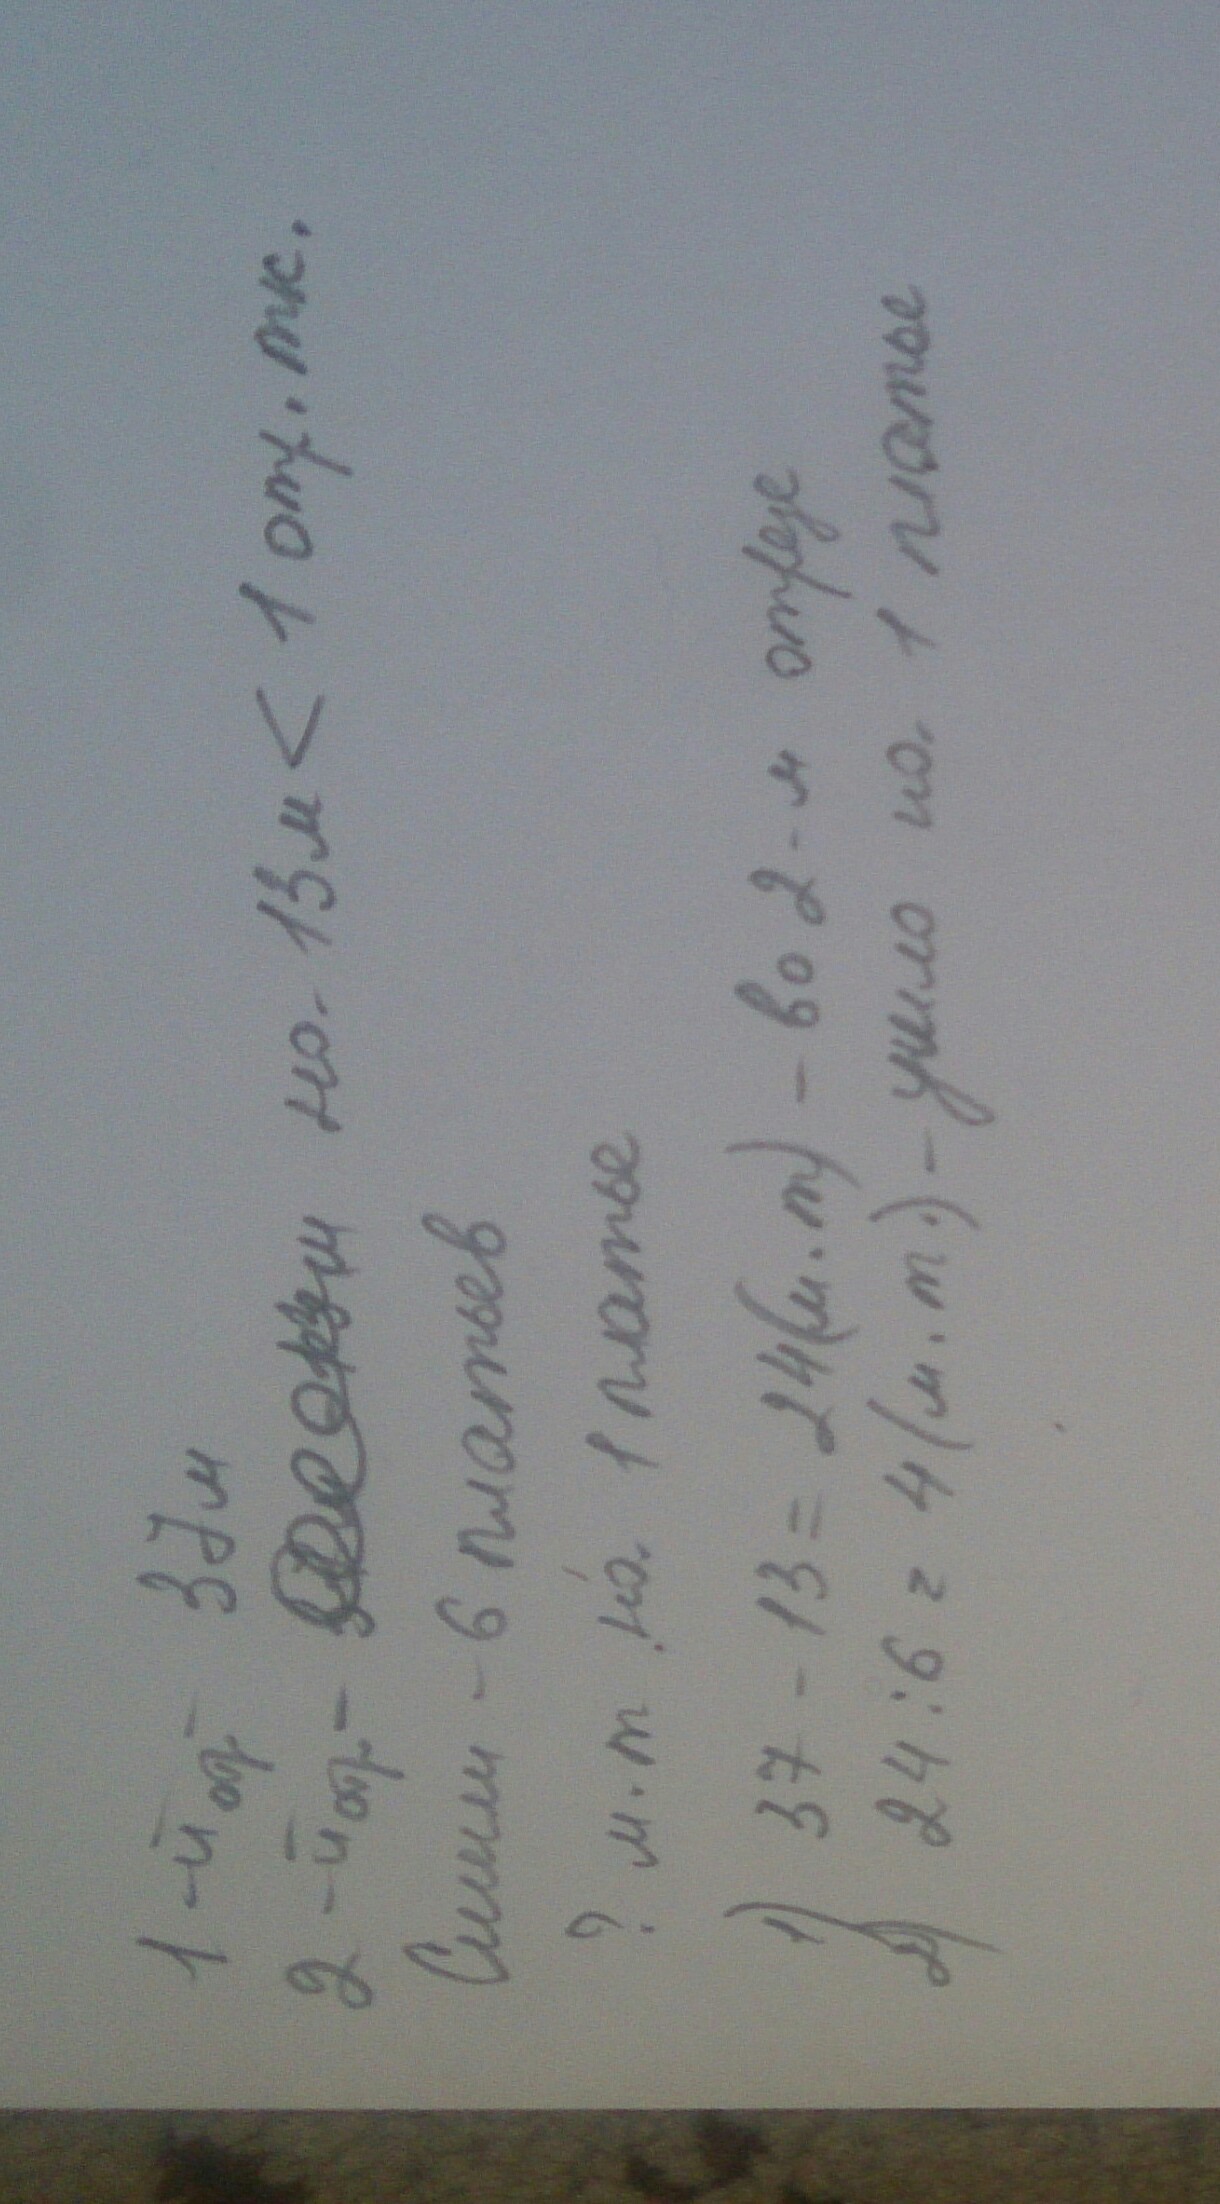 1-й от - 37м
2-й от. - на 13м < 1 от. тк.
Сшили - 6 платьев
? м.т на 1 платье
1) 37 - 13 = 24(м.т) - во 2-м отрезе
2) 24 : 6 = 4(м.т.) - ушло на 1 платье